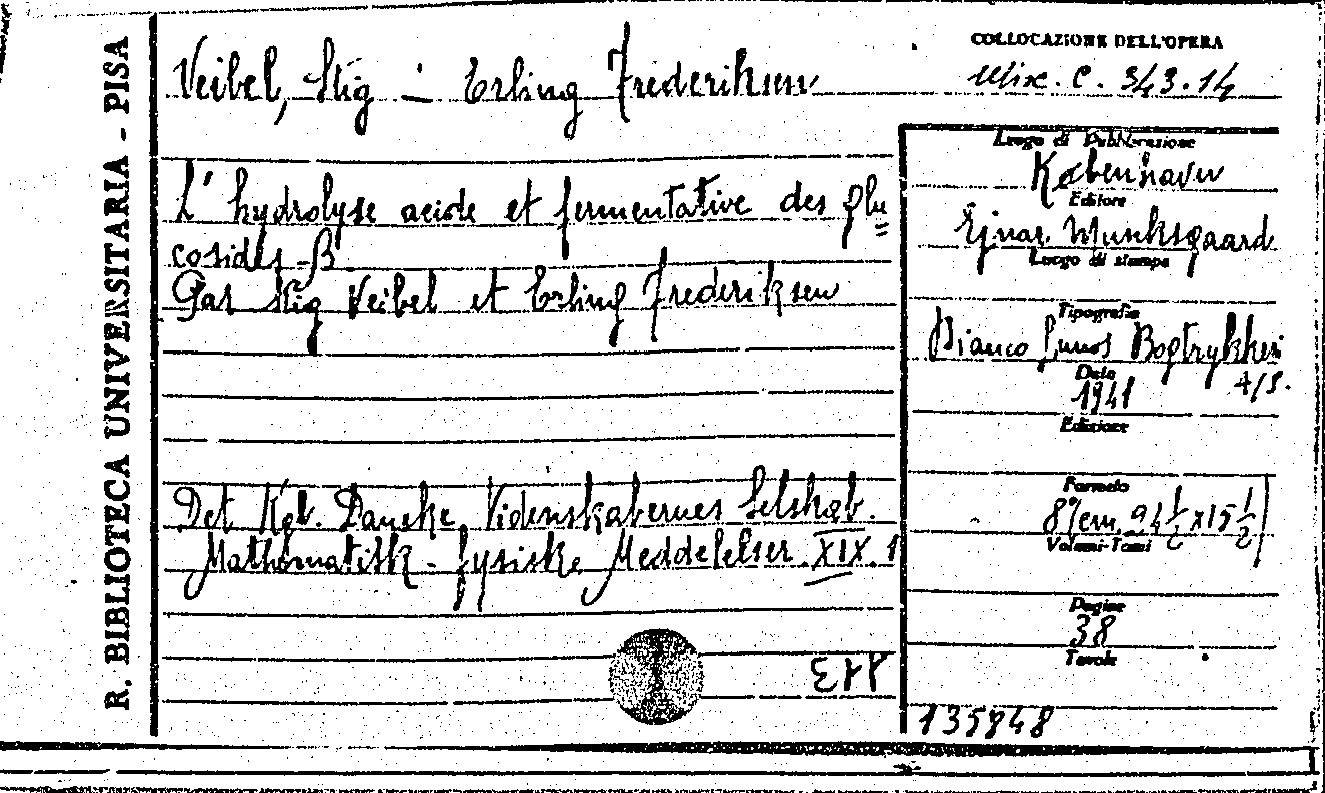 R. BIBLIOTECA UNIVERSITARIA - PISA
Veibel, Stig - Erling Frederiksen
COLLOCAZIONE DELL'OPERA
Misc. C. 343.14
L' hydrolyse acide et fermentative des glu=
cosides-β
Par Stig Veibel et Erling Frederiksen
Det Kgl. Danske Videnskabernes Selskab.
Mathematisk-fysiske Meddelelser. XIX. 1
Luogo di Pubblicazione
København
Editore
Ejnar Munksgaard
Luogo di stampa
Tipografia
Bianco Lunos Bogtrykkeri
A/S.
Data
1941
Edizione
Formato
8º/cm. 24 1/2 x 15 1/2
Volumi-Tomi
Pagine
38
Tavole
135848